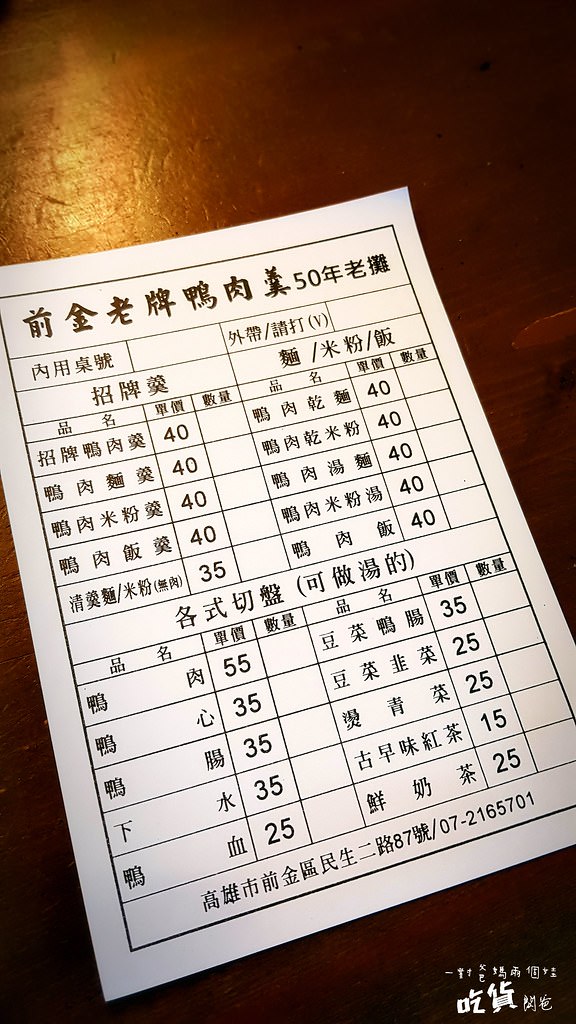 前金老牌鴨肉羹50年老攤
內用桌號 外帶/請打(V)
招牌羹 麵/米粉/飯
品名 單價 數量 品名 單價 數量
招牌鴨肉羹 40 鴨肉乾麵 40
鴨肉麵羹 40 鴨肉乾米粉 40
鴨肉米粉羹 40 鴨肉湯麵 40
鴨肉飯羹 40 鴨肉米粉湯 40
清羹麵/米粉(無肉) 35 鴨肉飯 40
各式切盤(可做湯的)
品名 單價 數量 品名 單價 數量
鴨肉 55 豆菜鴨腸 35
鴨心 35 豆菜韭菜 25
鴨腸 35 燙青菜 25
下水 35 古早味紅茶 15
鴨血 25 鮮奶茶 25
高雄市前金區民生二路87號/07-2165701
一對爸媽兩個娃
吃貨闆爸